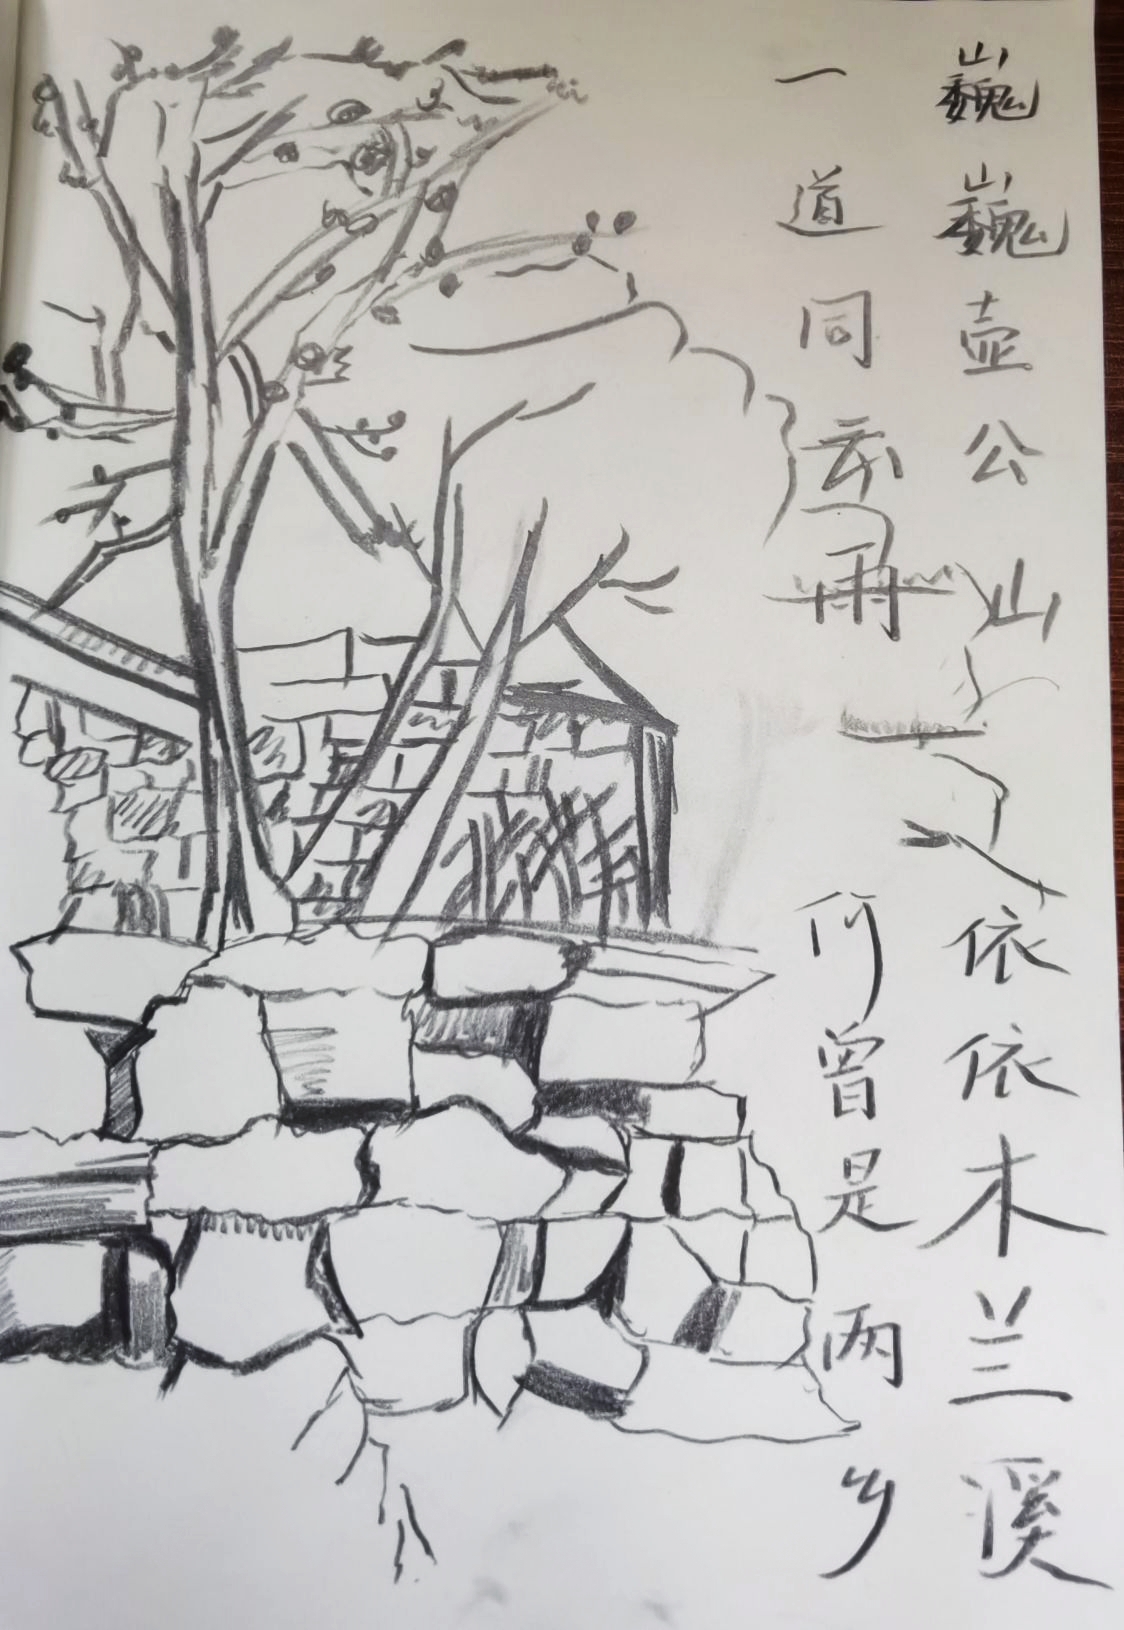 巍巍壶公山 依依木兰溪
一道同云雨 何曾是两乡